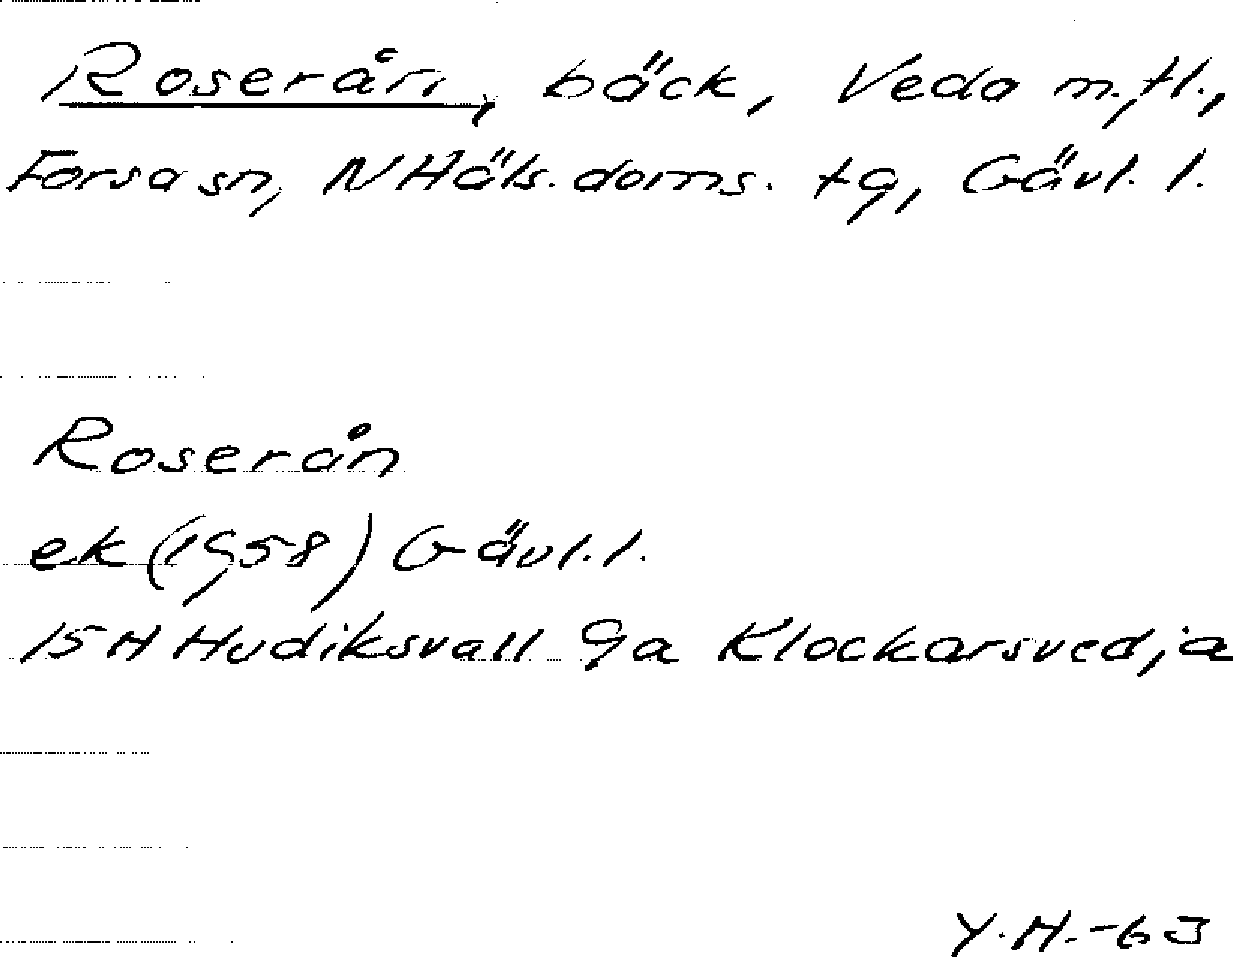 Roserån, bäck, Veda m.fl.,
Forsa sn, N Häls. doms. tg, Gävl. l.
Roserån
ek (1958) Gävl. l.
15H Hudiksvall 9a Klockarsvedja
Y.H.-63